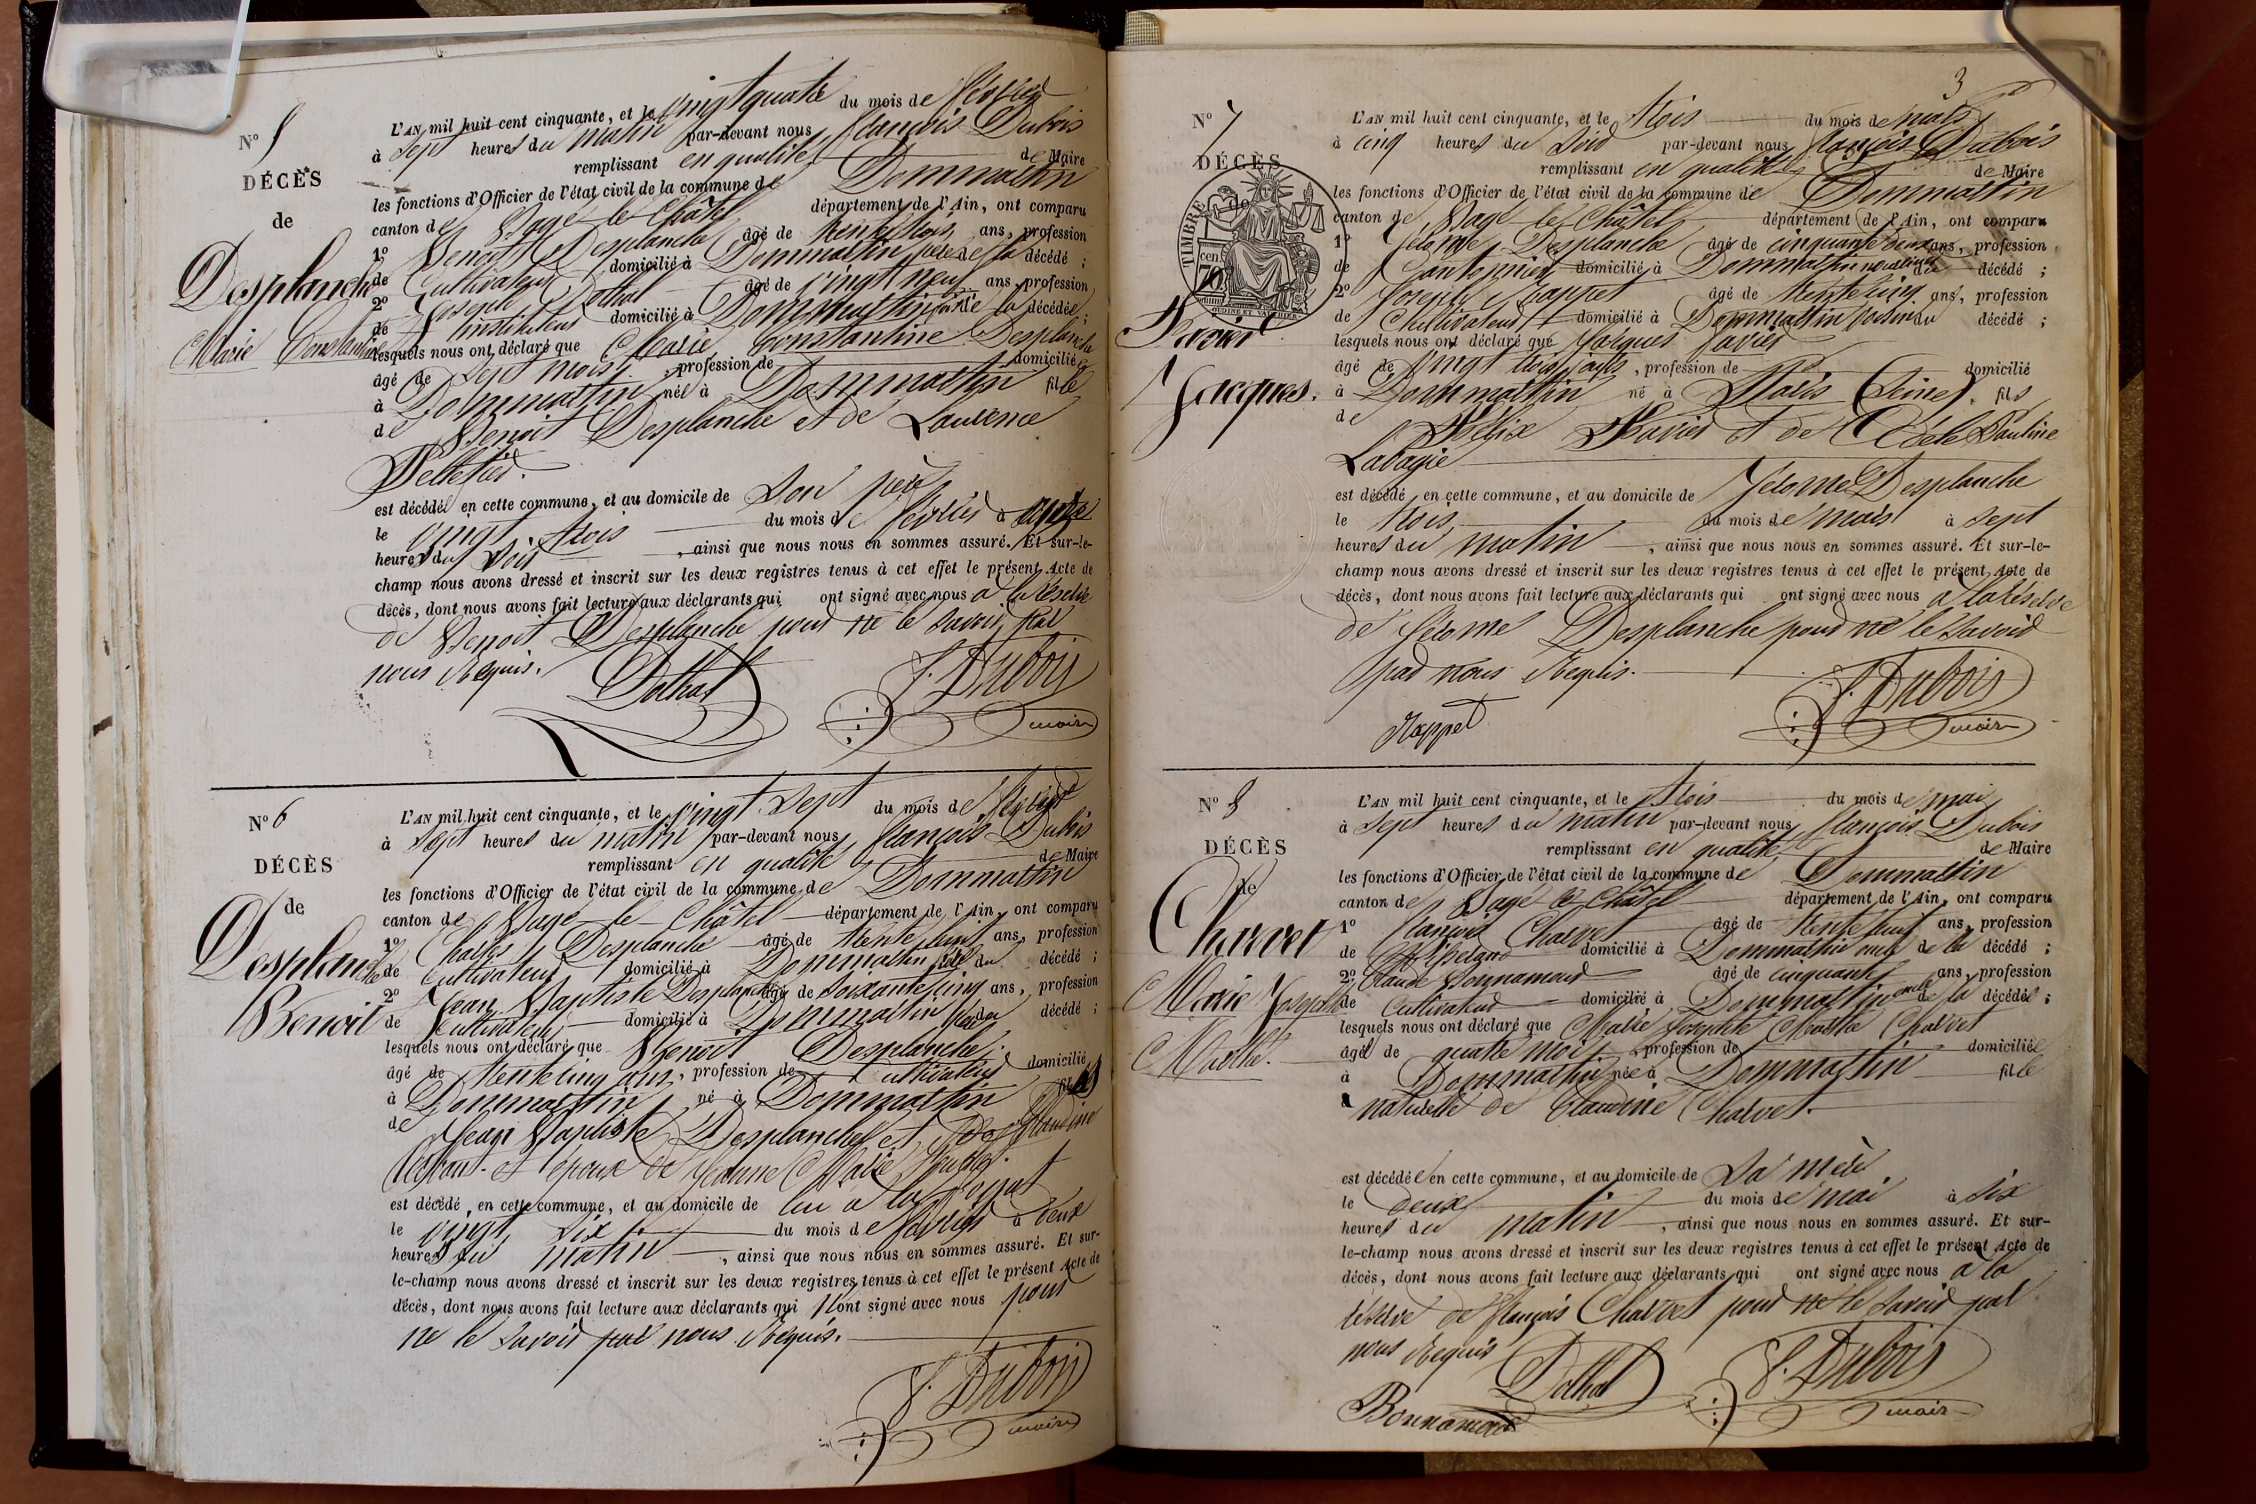 N° 5
DÉCÈS
de
Desplanche
Marie Constantine
L'AN mil huit cent cinquante, et le vingt quatre du mois de février
à sept heures du matin par-devant nous françois Dubois
remplissant en qualité de Maire
les fonctions d'Officier de l'état civil de la commune de Dommartin
canton de Bagé le Châtel département de l'Ain, ont comparu
1° Benoit Desplanche âgé de trente trois ans, profession
de Cultivateur domicilié à Dommartin père de la décédé ;
2° Joseph Dothal âgé de vingt neuf ans, profession
de instituteur domicilié à Dommartin de la décédée ;
lesquels nous ont déclaré que Marie Constantine Desplanche
âgé de sept mois, profession de domiciliée
à Dommartin née à Dommartin fille
de Benoit Desplanche et de Laurence
Pelletier.
est décédée en cette commune, et au domicile de son père
le vingt trois du mois de février à
heures du soir, ainsi que nous nous en sommes assuré. Et sur-le-
champ nous avons dressé et inscrit sur les deux registres tenus à cet effet le présent Acte de
décès, dont nous avons fait lecture aux déclarants qui ont signé avec nous à la réserve
de Benoit Desplanche pour ne le savoir par
nous Requis.
Dothal F. Dubois
maire
N° 6
DÉCÈS
de
Desplanche
Benoit
L'AN mil huit cent cinquante, et le vingt sept du mois de février
à sept heures du matin par-devant nous françois Dubois
remplissant en qualité de Maire
les fonctions d'Officier de l'état civil de la commune de Dommartin
canton de Bagé le Châtel département de l'Ain, ont comparu
1° Charles Desplanche âgé de trente huit ans, profession
de Cultivateur domicilié à Dommartin du décédé ;
2° Jean Baptiste Desplanche âgé de soixante cinq ans, profession
de Cultivateur domicilié à Dommartin du décédé ;
lesquels nous ont déclaré que Benoit Desplanche
âgé de trente cinq ans, profession de Cultivateur domicilié
à Dommartin né à Dommartin fils
de Jean Baptiste Desplanche et de Claudine
et époux de Jeanne Marie
est décédé en cette commune, et au domicile de lui à
le vingt six du mois de février à deux
heures du matin, ainsi que nous nous en sommes assuré. Et sur-
le-champ nous avons dressé et inscrit sur les deux registres tenus à cet effet le présent Acte de
décès, dont nous avons fait lecture aux déclarants qui n'ont signé avec nous pour
ne le savoir par nous Requis.
F. Dubois
maire
3
N° 7
DÉCÈS
de
TIMBRE
70 cen
OUDINE ET VAUTHIER
Favier
Jacques.
L'AN mil huit cent cinquante, et le trois du mois de mars
à cinq heures du soir par-devant nous françois Dubois
remplissant en qualité de Maire
les fonctions d'Officier de l'état civil de la commune de Dommartin
canton de Bagé le Châtel département de l'Ain, ont comparu
1° Jérome Desplanche âgé de cinquante deux ans, profession
de Cantonnier domicilié à Dommartin décédé ;
2° Joseph Nappet âgé de trente cinq ans, profession
de Cultivateur domicilié à Dommartin voisin du décédé ;
lesquels nous ont déclaré que Jacques Favier
âgé de vingt trois jours, profession de domicilié
à Dommartin né à Paris (Seine). fils
de Félix Favier et de Adèle Pauline
Labagie
est décédé en cette commune, et au domicile de Jérome Desplanche
le trois du mois de mars à sept
heures du matin, ainsi que nous nous en sommes assuré. Et sur-le-
champ nous avons dressé et inscrit sur les deux registres tenus à cet effet le présent Acte de
décès, dont nous avons fait lecture aux déclarants qui ont signé avec nous à la réserve
de Jérome Desplanche pour ne le savoir
par nous Requis.
Nappet F. Dubois
maire
N° 8
DÉCÈS
de
Charvet
Marie Josephte
Marthe.
L'AN mil huit cent cinquante, et le trois du mois de mai
à sept heures du matin par-devant nous françois Dubois
remplissant en qualité de Maire
les fonctions d'Officier de l'état civil de la commune de Dommartin
canton de Bagé le Châtel département de l'Ain, ont comparu
1° françois Charvet âgé de trente huit ans, profession
de domicilié à Dommartin oncle de la décédé ;
2° Claude Bonnamour âgé de cinquante ans, profession
de Cultivateur domicilié à Dommartin oncle de la décédée ;
lesquels nous ont déclaré que Marie Josephte Marthe Charvet
âgée de quatre mois, profession de domiciliée
à Dommartin née à Dommartin fille
naturelle de Claudine Charvet.
est décédée en cette commune, et au domicile de sa mère
le deux du mois de mai à six
heures du matin, ainsi que nous nous en sommes assuré. Et sur-
le-champ nous avons dressé et inscrit sur les deux registres tenus à cet effet le présent Acte de
décès, dont nous avons fait lecture aux déclarants qui ont signé avec nous à la
réserve de françois Charvet pour ne le savoir par
nous Requis
Dothal F. Dubois
Bonnamour maire